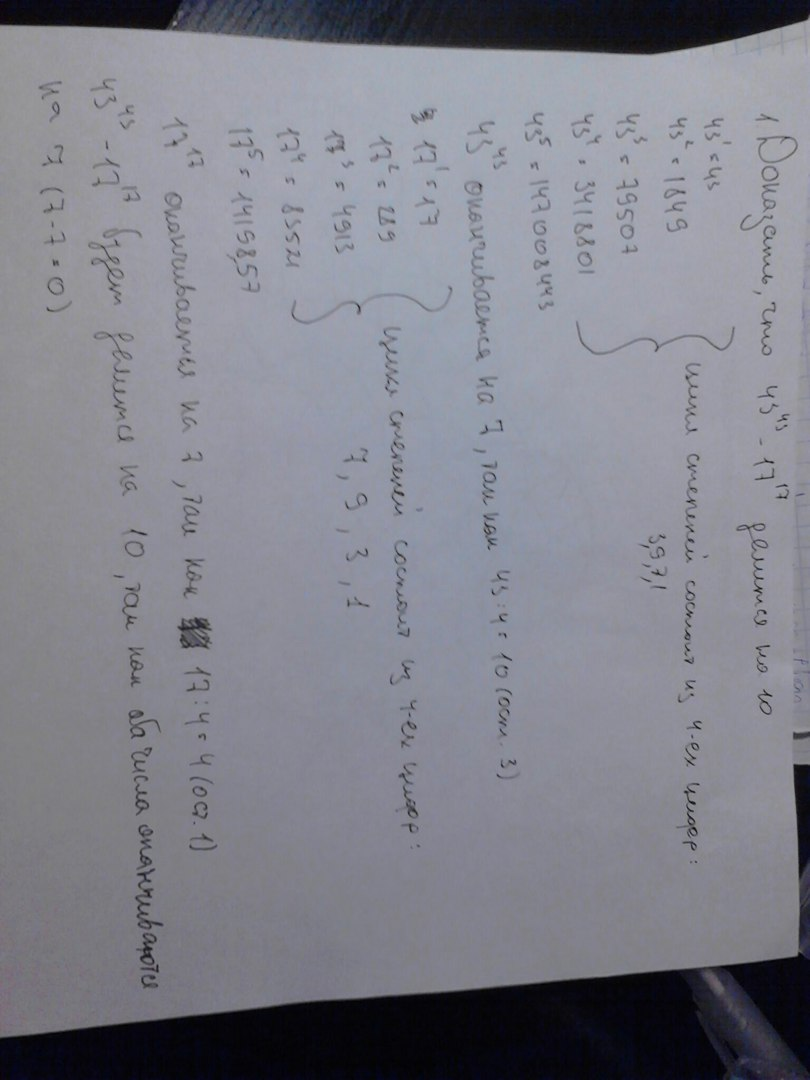 1. Доказать, что 43⁴³ - 17¹⁷ делится на 10
43¹ = 43
43² = 1849
43³ = 79507
43⁴ = 3418801
43⁵ = 147008443
цикл степеней состоит из 4-ех цифр:
3,9,7,1
43⁴³ оканчивается на 7, так как 43:4=10(ост. 3)
17¹ = 17
17² = 289
17³ = 4913
17⁴ = 83521
17⁵ = 1419857
цикл степеней состоит из 4-ех цифр:
7, 9, 3, 1
17¹⁷ оканчивается на 7, так как 17:4=4(ост.1)
43⁴³ - 17¹⁷ будет делится на 10, так как оба числа оканчиваются
на 7 (7-7=0)